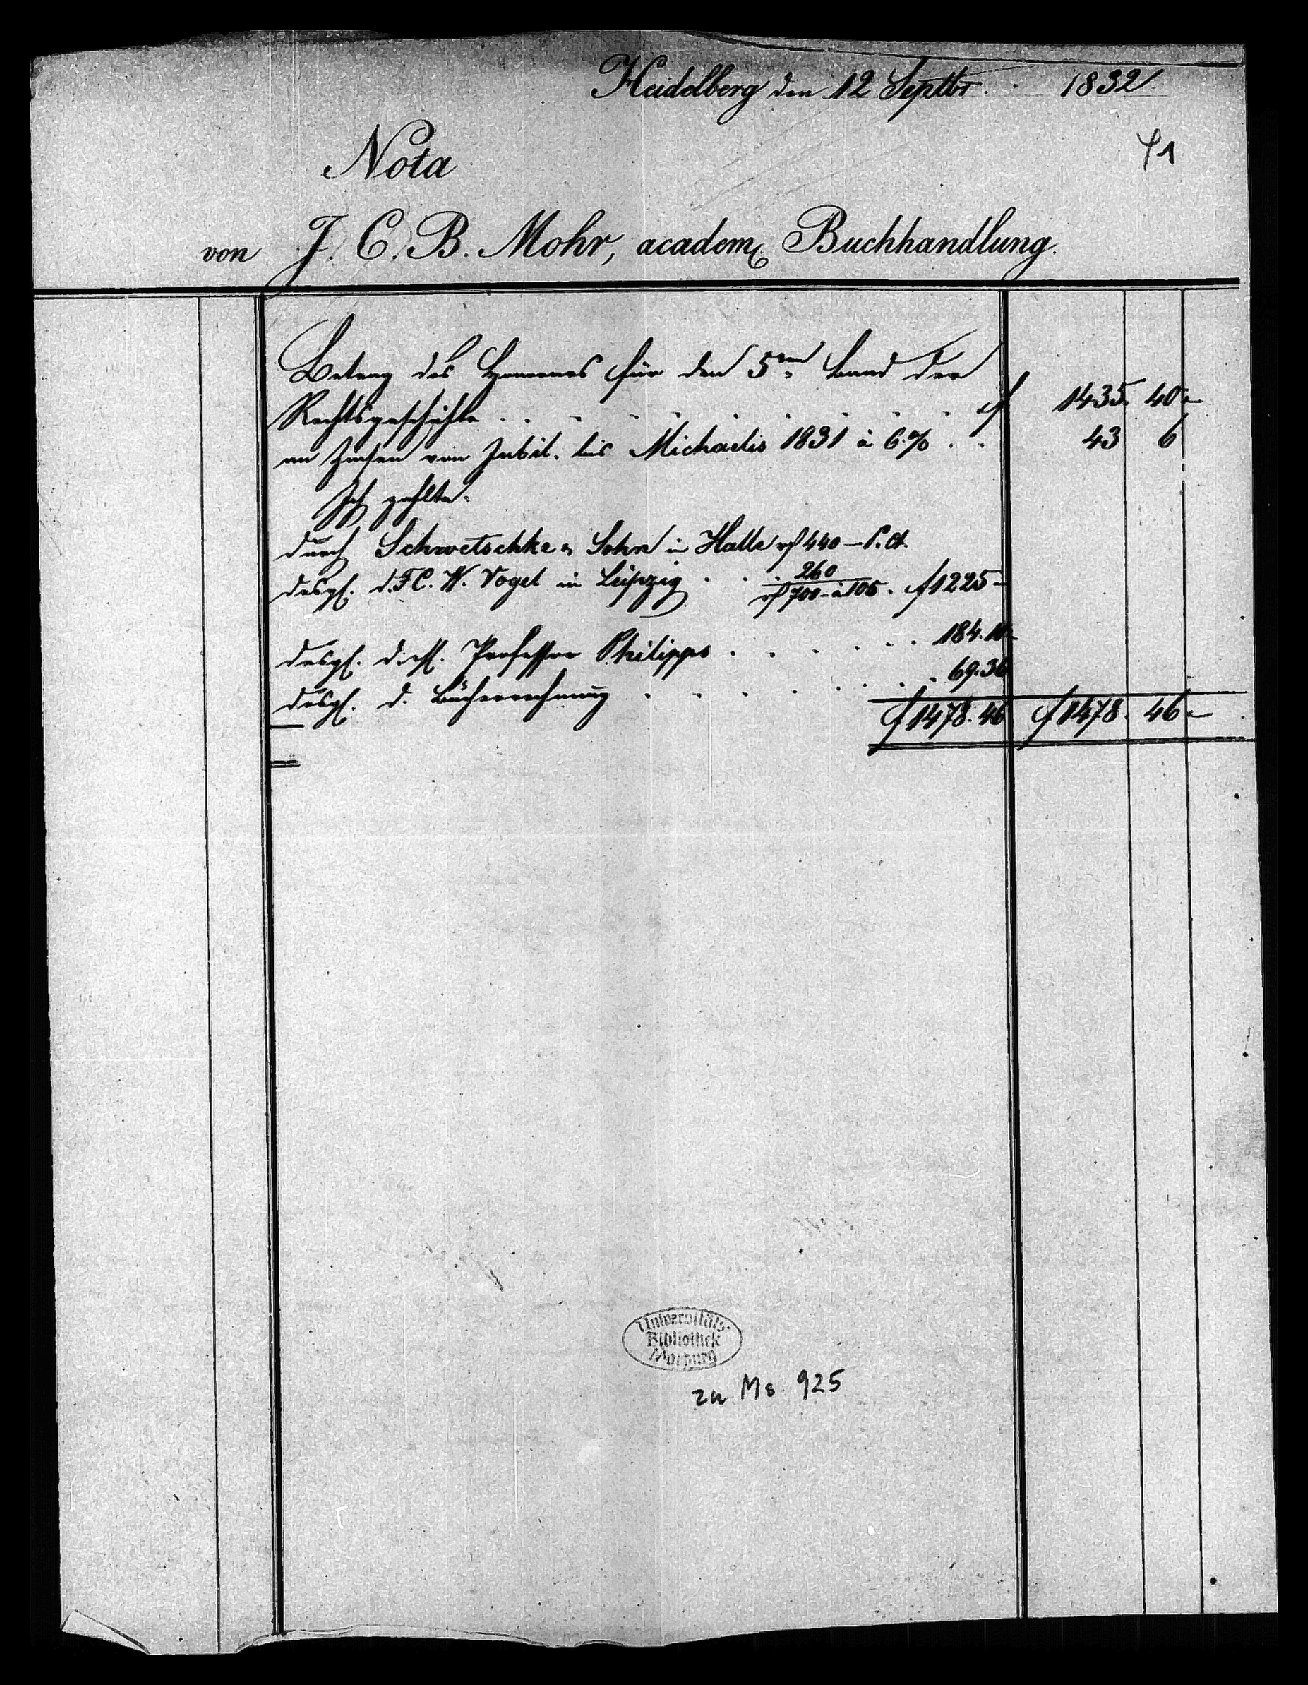 Heidelberg den 12 Septbr. 1832.
71
Nota
von J. C. B. Mohr, academ. Buchhandlung.
Betrag des Honorares für den 5ten Band der
Rechtsgeschichte . . . . . . . . . f 1435. 40
an Zinsen von Jubil. bis Michaelis 1831 à 6 % . . 43 6
Ich zahlte.
durch Schwetschke & Sohn in Halle 440 — P. Ct.
desgl. d. F. C. W. Vogel in Leipzig . . . 260
700 – à 105 . f 1225 –
desgl. durch Professor Philipps . . . . . 184. 10
desgl. d. Bücherrechnung . . . . . . . 69. 36
f 1478. 46 f 1478. 46
Universitäts-
Bibliothek
Marburg
zu Ms 925